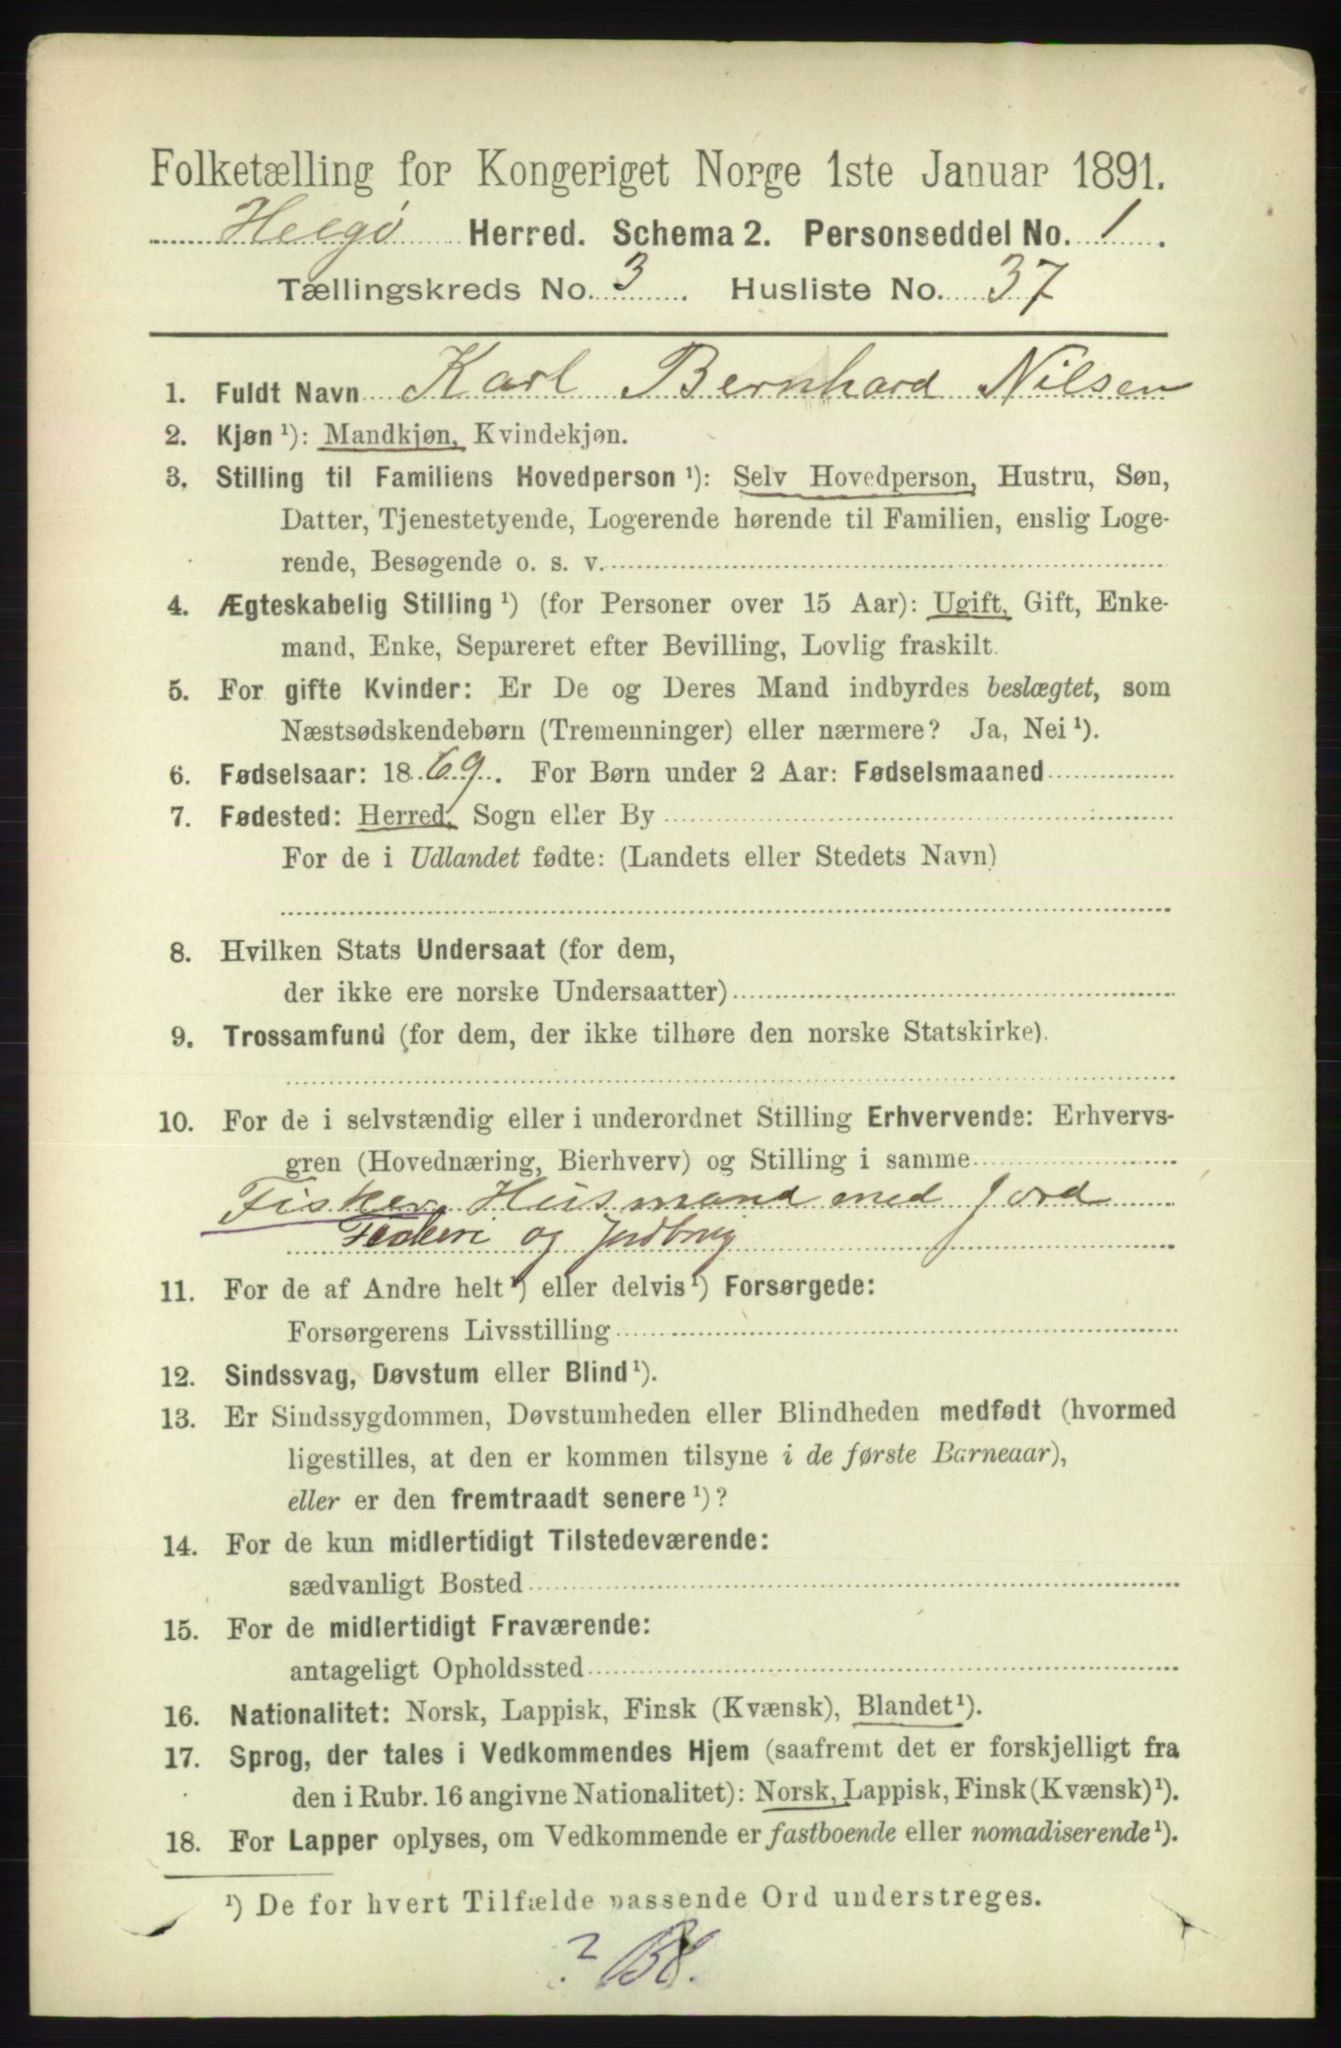 Folketælling for Kongeriget Norge 1ste Januar 1891.
Helgø Herred. Schema 2. Personseddel No. 1.
Tællingskreds No. 3. Husliste No. 37
1. Fuldt Navn Karl Bernhard Nilsen
2. Kjøn ¹): Mandkjøn, Kvindekjøn.
3. Stilling til Familiens Hovedperson ¹): Selv Hovedperson, Hustru, Søn,
Datter, Tjenestetyende, Logerende hørende til Familien, enslig Loge-
rende, Besøgende o. s. v.
4. Ægteskabelig Stilling ¹) (for Personer over 15 Aar): Ugift, Gift, Enke-
mand, Enke, Separeret efter Bevilling, Lovlig fraskilt.
5. For gifte Kvinder: Er De og Deres Mand indbyrdes beslægtet, som
Næstsødskendebørn (Tremenninger) eller nærmere? Ja, Nei ¹).
6. Fødselsaar: 1869. For Børn under 2 Aar: Fødselsmaaned
7. Fødested: Herred, Sogn eller By
For de i Udlandet fødte: (Landets eller Stedets Navn)
8. Hvilken Stats Undersaat (for dem,
der ikke ere norske Undersaatter)
9. Trossamfund (for dem, der ikke tilhøre den norske Statskirke).
10. For de i selvstændig eller i underordnet Stilling Erhvervende: Erhvervs-
gren (Hovednæring, Bierhverv) og Stilling i samme
Fisker, Husmand med Jord
Fiskeri og Jordbrug
11. For de af Andre helt ¹) eller delvis ¹) Forsørgede:
Forsørgerens Livsstilling
12. Sindssvag, Døvstum eller Blind ¹).
13. Er Sindssygdommen, Døvstumheden eller Blindheden medfødt (hvormed
ligestilles, at den er kommen tilsyne i de første Barneaar),
eller er den fremtraadt senere ¹)?
14. For de kun midlertidigt Tilstedeværende:
sædvanligt Bosted
15. For de midlertidigt Fraværende:
antageligt Opholdssted
16. Nationalitet: Norsk, Lappisk, Finsk (Kvænsk), Blandet ¹).
17. Sprog, der tales i Vedkommendes Hjem (saafremt det er forskjelligt fra
den i Rubr. 16 angivne Nationalitet): Norsk, Lappisk, Finsk (Kvænsk) ¹).
18. For Lapper oplyses, om Vedkommende er fastboende eller nomadiserende ¹).
¹) De for hvert Tilfælde passende Ord understreges.
? Bl.